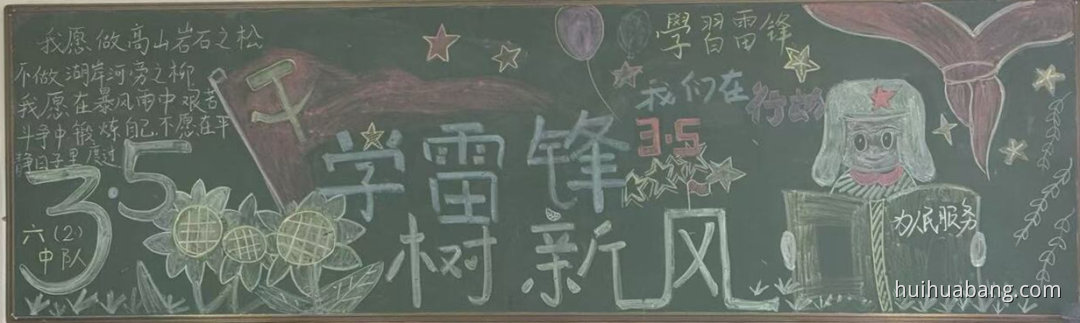 我愿做高山岩石之松
不做湖岸河旁之柳
我愿在暴风雨中艰苦
斗争中锻炼自己不愿在平
静日子里度过
3·5
六(2)
中队
学雷锋
树新风
學習雷锋
我们在
行动
3·5
为人民服务
huihuabang.com